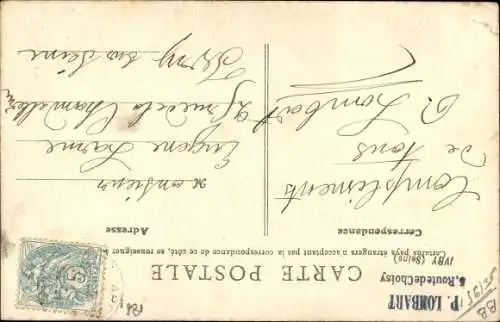 CARTE POSTALE
Certains pays étrangers n'acceptant pas la correspondance de ce côté, se renseigner
Correspondance
Adresse
P. LOMBART
5, Route de Choisy
IVRY (Seine)
Compliments
De tous
P. Lombart
Monsieur
Eugène Larme
rue de la Chandelier
Ivry sur Seine